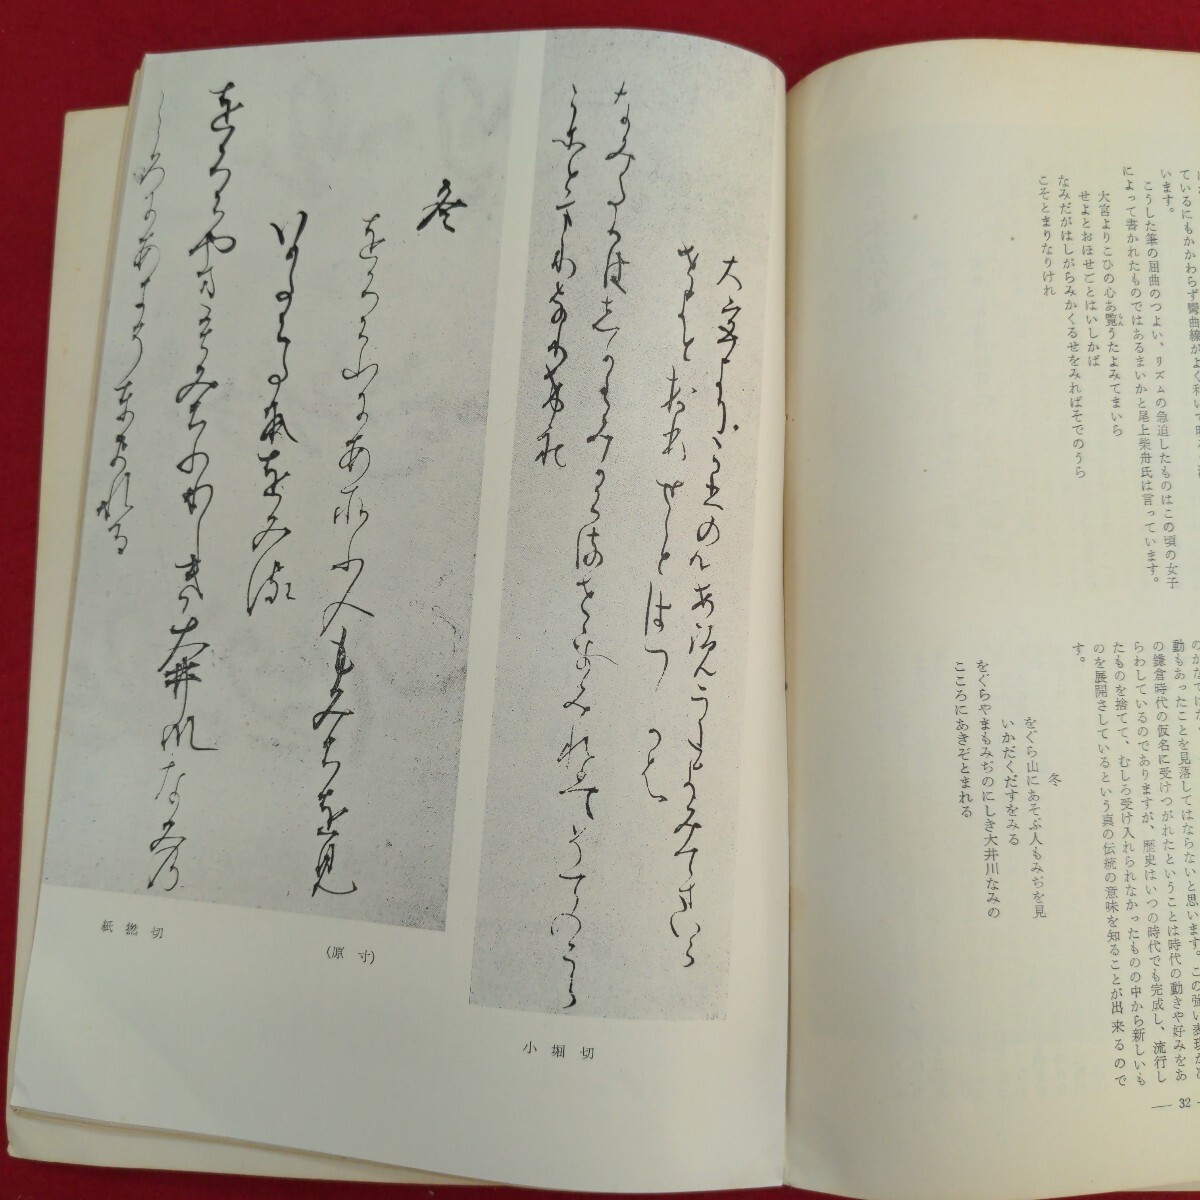 ているにもかかわらず彎曲線がよく利いて
います。
こうした筆の屈曲のつよい、リズムの急迫したものはこの頃の女子
によって書かれたものではあるまいかと尾上柴舟氏は言っています。
大宮よりこひの心あ覧うたよみてまいら
せよとおほせごとはいしかば
なみだがはしがらみかくるせをみればそでのうら
こそとまりなりけれ
動もあったことを見落してはならないと思います。この強い表現が
の鎌倉時代の仮名に受けつがれたということは時代の動きや好みをあ
らわしているのでありますが、歴史はいつの時代でも完成し、流行し
たものを捨てて、むしろ受け入れられなかったものの中から新しいも
のを展開さしているという真の伝統の意味を知ることが出来るので
す。
冬
をぐら山にあそぶ人もみぢを見
いかだくだすをみる
をぐらやまもみぢのにしき大井川なみの
こころにあきぞとまれる
— 32
大宮よりこひの心あ覧うたよみてまいら
せよとおほせことはへ
なみたかはしからみかくるせをみれはそてのうら
こそとまりなりけれ
小堀切
冬
をくら山にあそふ人もみちを見
いかたくたすをみる
をくらやまもみちのにしき大井川なみの
こころにあきそとまれる
(原寸)
紙撚切